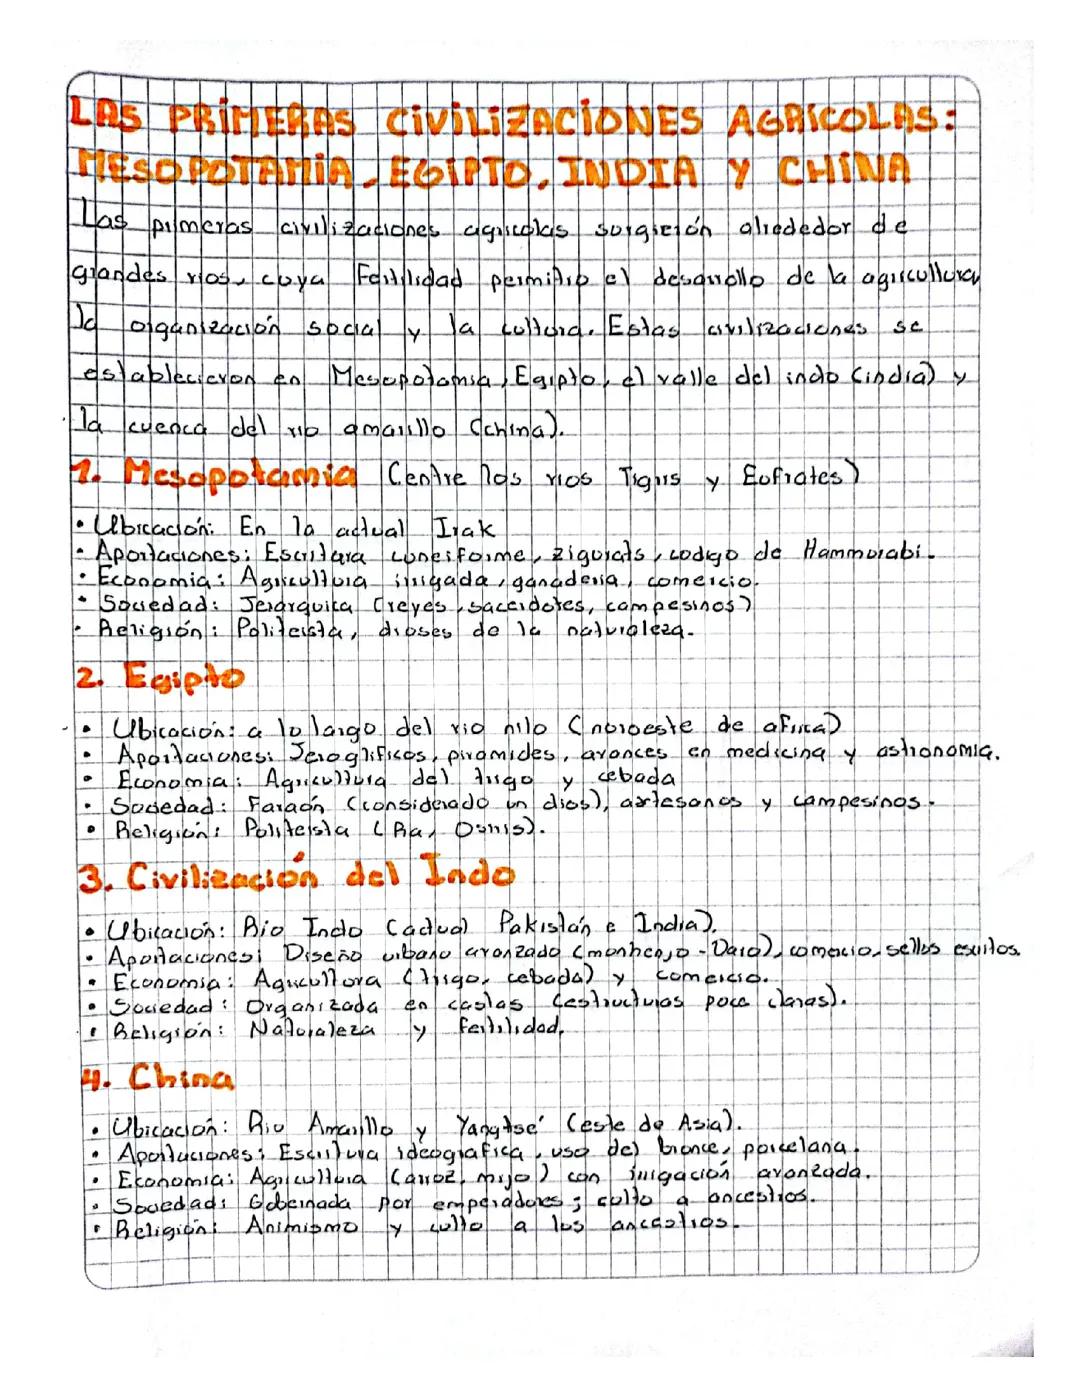 LAS PRIMERAS CIVILIZACIONES AGRÍCOLAS:
MESOPOTAMIA, EGIPTO, INDIA Y CHINA
Las primeras civilizaciones agricolas surgierón alrededor de
grandes rios, cuya Fertilidad permitio el desarrollo de la agricultura
la organización social y la cultura. Estas civilizaciones se
establecieron en Mesopotamia, Egipto, el valle del indo (india) y
la cuenca del rio amarillo (china).
1. Mesopotamia (entre los rios Tigris y Eufrates)
• Ubicación: En la actual Irak
• Aportaciones: Escritura cuneiforme, zigurats, codigo de Hammurabi.
• Economia: Agricultura irrigada, ganaderia, comercio.
• Sociedad: Jerarquica (reyes, sacerdotes, campesinos)
• Religión: Politeista, dioses de la naturaleza.
2. Egipto
• Ubicación: a lo largo del rio nilo (noroeste de africa)
• Aportaciones: Jeroglificos, piramides, avances en medicina y astronomia.
• Economia: Agricultura del trigo y cebada
• Sociedad: Faraón (considerado un dios), artesanos y campesinos.
• Religión: Politeista (Ra, Osiris).
3. Civilización del Indo
• Ubicación: Rio Indo (actual Pakistán e India).
• Aportaciones: Diseño urbano avanzado (monhenjo-Daro), comercio, sellos escritos.
• Economia: Agricultora (trigo, cebada) y comercio.
• Sociedad: Organizada en castas (estructuras poco claras).
• Religión: Naturaleza y fertilidad.
4. China
• Ubicación: Rio Amarillo y Yangtsé (este de Asia).
• Aportaciones: Escritura ideografica, uso del bronce, porcelana.
• Economia: Agricultura (arroz, mijo) con irrigación avanzada.
• Sociedad: Gobernada por emperadores; culto a ancestros.
• Religión: Animismo y culto a los ancestros.